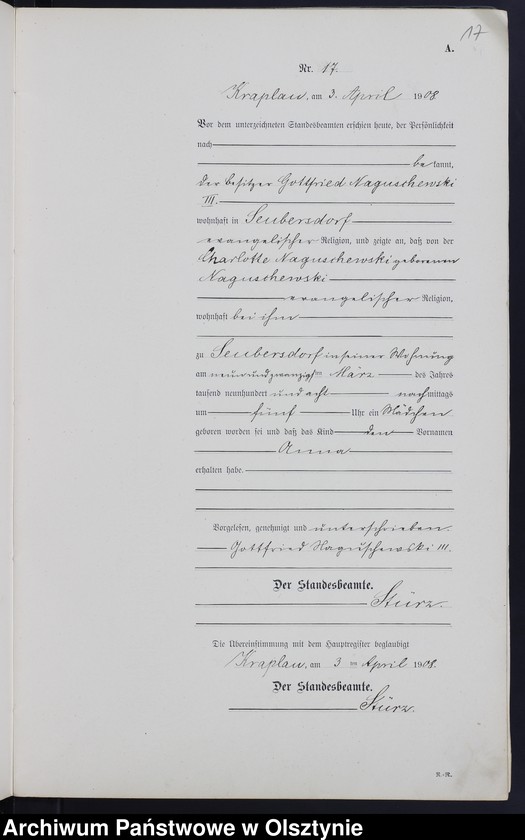 17
A.
Nr. 17.
Kraplau, am 3. April 1908
Vor dem unterzeichneten Standesbeamten erschien heute, der Persönlichkeit
nach
be kannt,
der Besitzer Gottfried Naguschewski
III.
wohnhaft in Seubersdorf
evangelischer Religion, und zeigte an, daß von der
Charlotte Naguschewski geborenen
Naguschewski
evangelischer Religion,
wohnhaft bei ihm
zu Seubersdorf in seiner Wohnung
am neunundzwanzigsten März des Jahres
tausend neunhundert und acht nachmittags
um fünf Uhr ein Mädchen
geboren worden sei und daß das Kind den Vornamen
Anna
erhalten habe.
Vorgelesen, genehmigt und unterschrieben.
Gottfried Naguschewski III.
Der Standesbeamte.
Stürz.
Die Übereinstimmung mit dem Hauptregister beglaubigt
Kraplau, am 3 ten April 1908.
Der Standesbeamte.
Stürz.
R.-R.
Archiwum Państwowe w Olsztynie